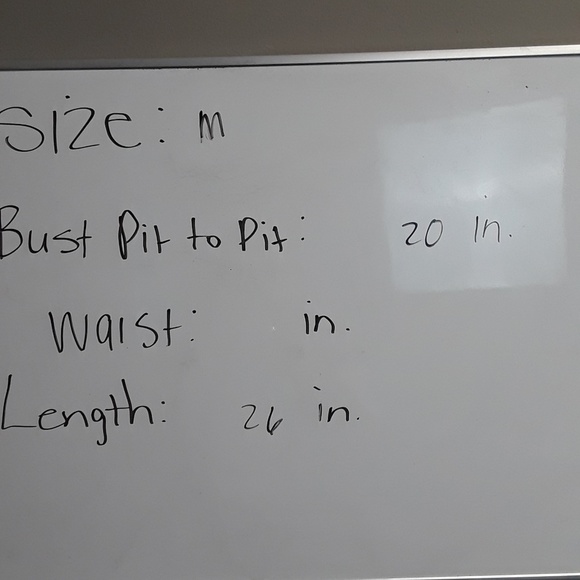 Size: m
Bust Pit to Pit: 20 in.
Waist: in.
Length: 26 in.